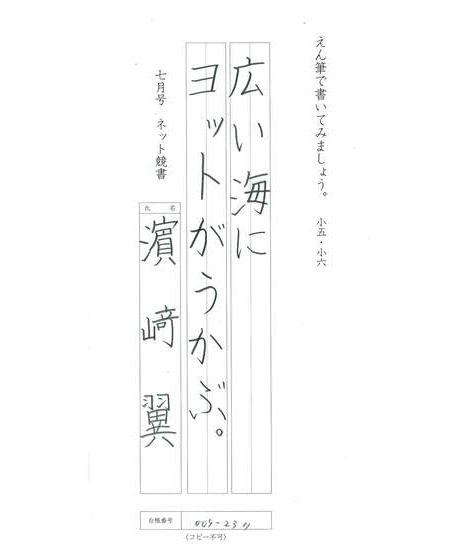 えん筆で書いてみましょう。 小五・小六
広い海に
ヨットがうかぶ。
七月号 ネット競書
氏 名
濵﨑 翼
台帳番号 009-2311
(コピー不可)